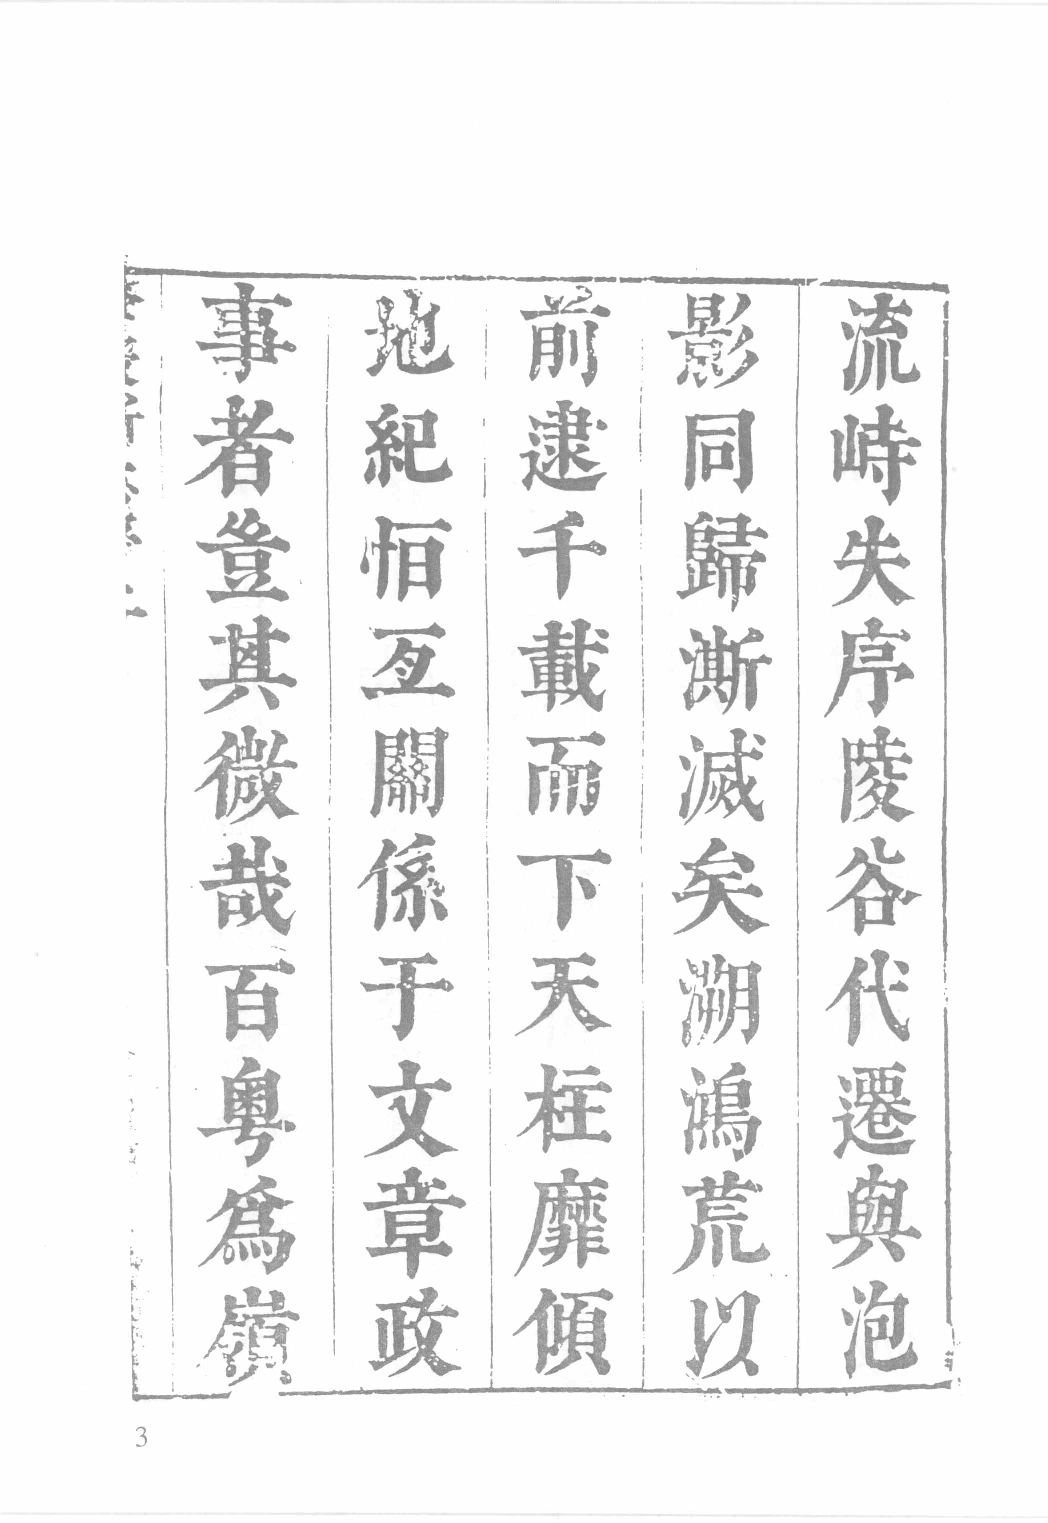 流峙失序陵谷代遷與泡
影同歸漸滅矣溯鴻荒以
前逮千載而下天柱靡傾
地紀恒亙關係于文章政
事者豈其微哉百粵為嶺
3